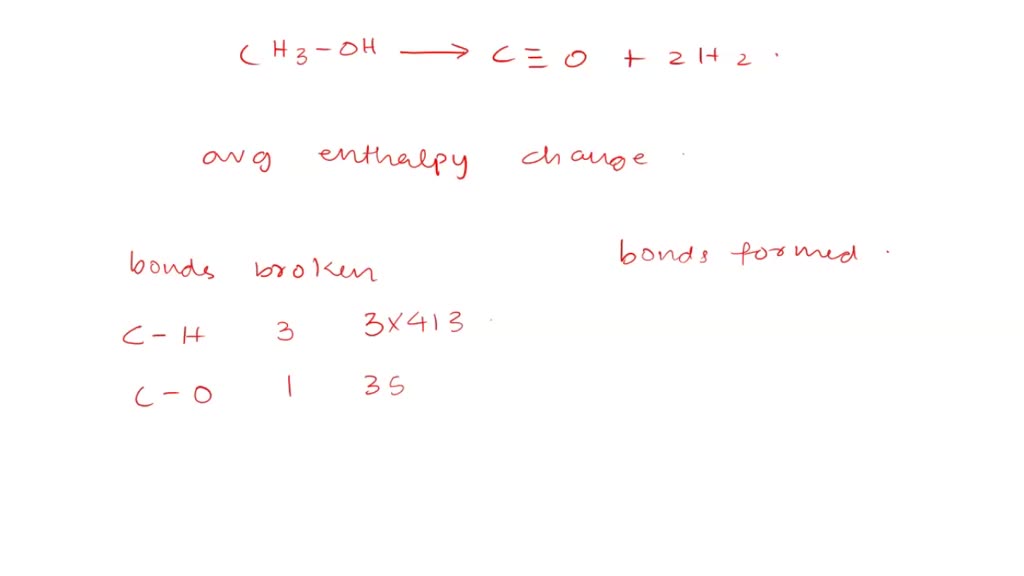 CH3-OH → C≡O + 2H2.
avg enthalpy change
bonds broken
bonds formed.
C-H 3 3×413
C-O 1 35